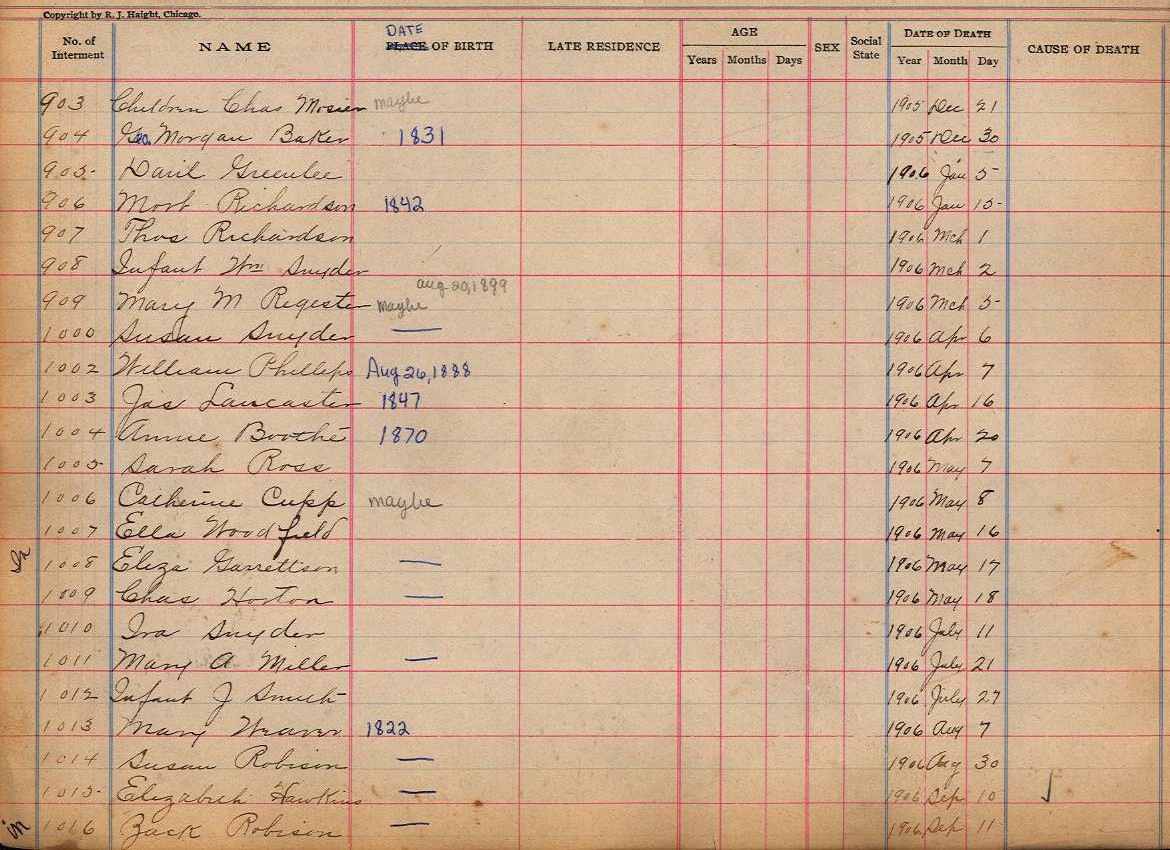 Copyright by R. J. Haight, Chicago.
No. of Interment NAME DATE PLACE OF BIRTH LATE RESIDENCE AGE Years Months Days SEX Social State DATE OF DEATH Year Month Day CAUSE OF DEATH
903 Children Chas Mosier maybe 1905 Dec 21
904 Geo. Morgan Baker 1831 1905 Dec 30
905 Daril Greenlee 1906 Jan 5
906 Mort Richardson 1842 1906 Jan 15
907 Thos Richardson 1906 Mch 1
908 Infant Wm Snyder 1906 Mch 2
aug 20, 1899
909 Mary M Regester maybe 1906 Mch 5
1000 Susan Snyder — 1906 Apr 6
1002 William Phillips Aug 26, 1888 1906 Apr 7
1003 Jas Lancaster 1847 1906 Apr 16
1004 Annie Boothe 1870 1906 Apr 20
1005 Sarah Ross 1906 May 7
1006 Catherine Cupp maybe 1906 May 8
1007 Ella Woodfield 1906 May 16
1008 Eliza Garrettson — 1906 May 17
1009 Chas Horton — 1906 May 18
1010 Ira Snyder 1906 July 11
1011 Mary A Miller — 1906 July 21
1012 Infant J Smith 1906 July 27
1013 Mary Weaver 1822 1906 Aug 7
1014 Susan Robison — 1906 Aug 30
1015 Elizabeth Hawkins — 1906 Sep 10
in 1016 Zack Robison — 1906 Sep 11